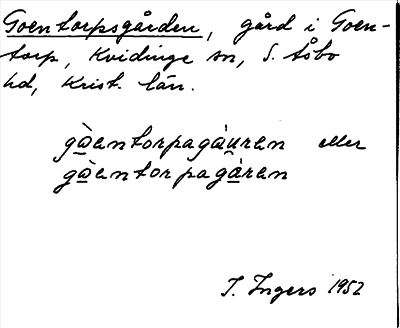 Goentorpsgården, gård i Goen-
torp, Kvidinge sn, S. Åsbo
hd, Krist. län.
gòentorpagáuren eller
gòentorpagåren
I. Ingers 1952